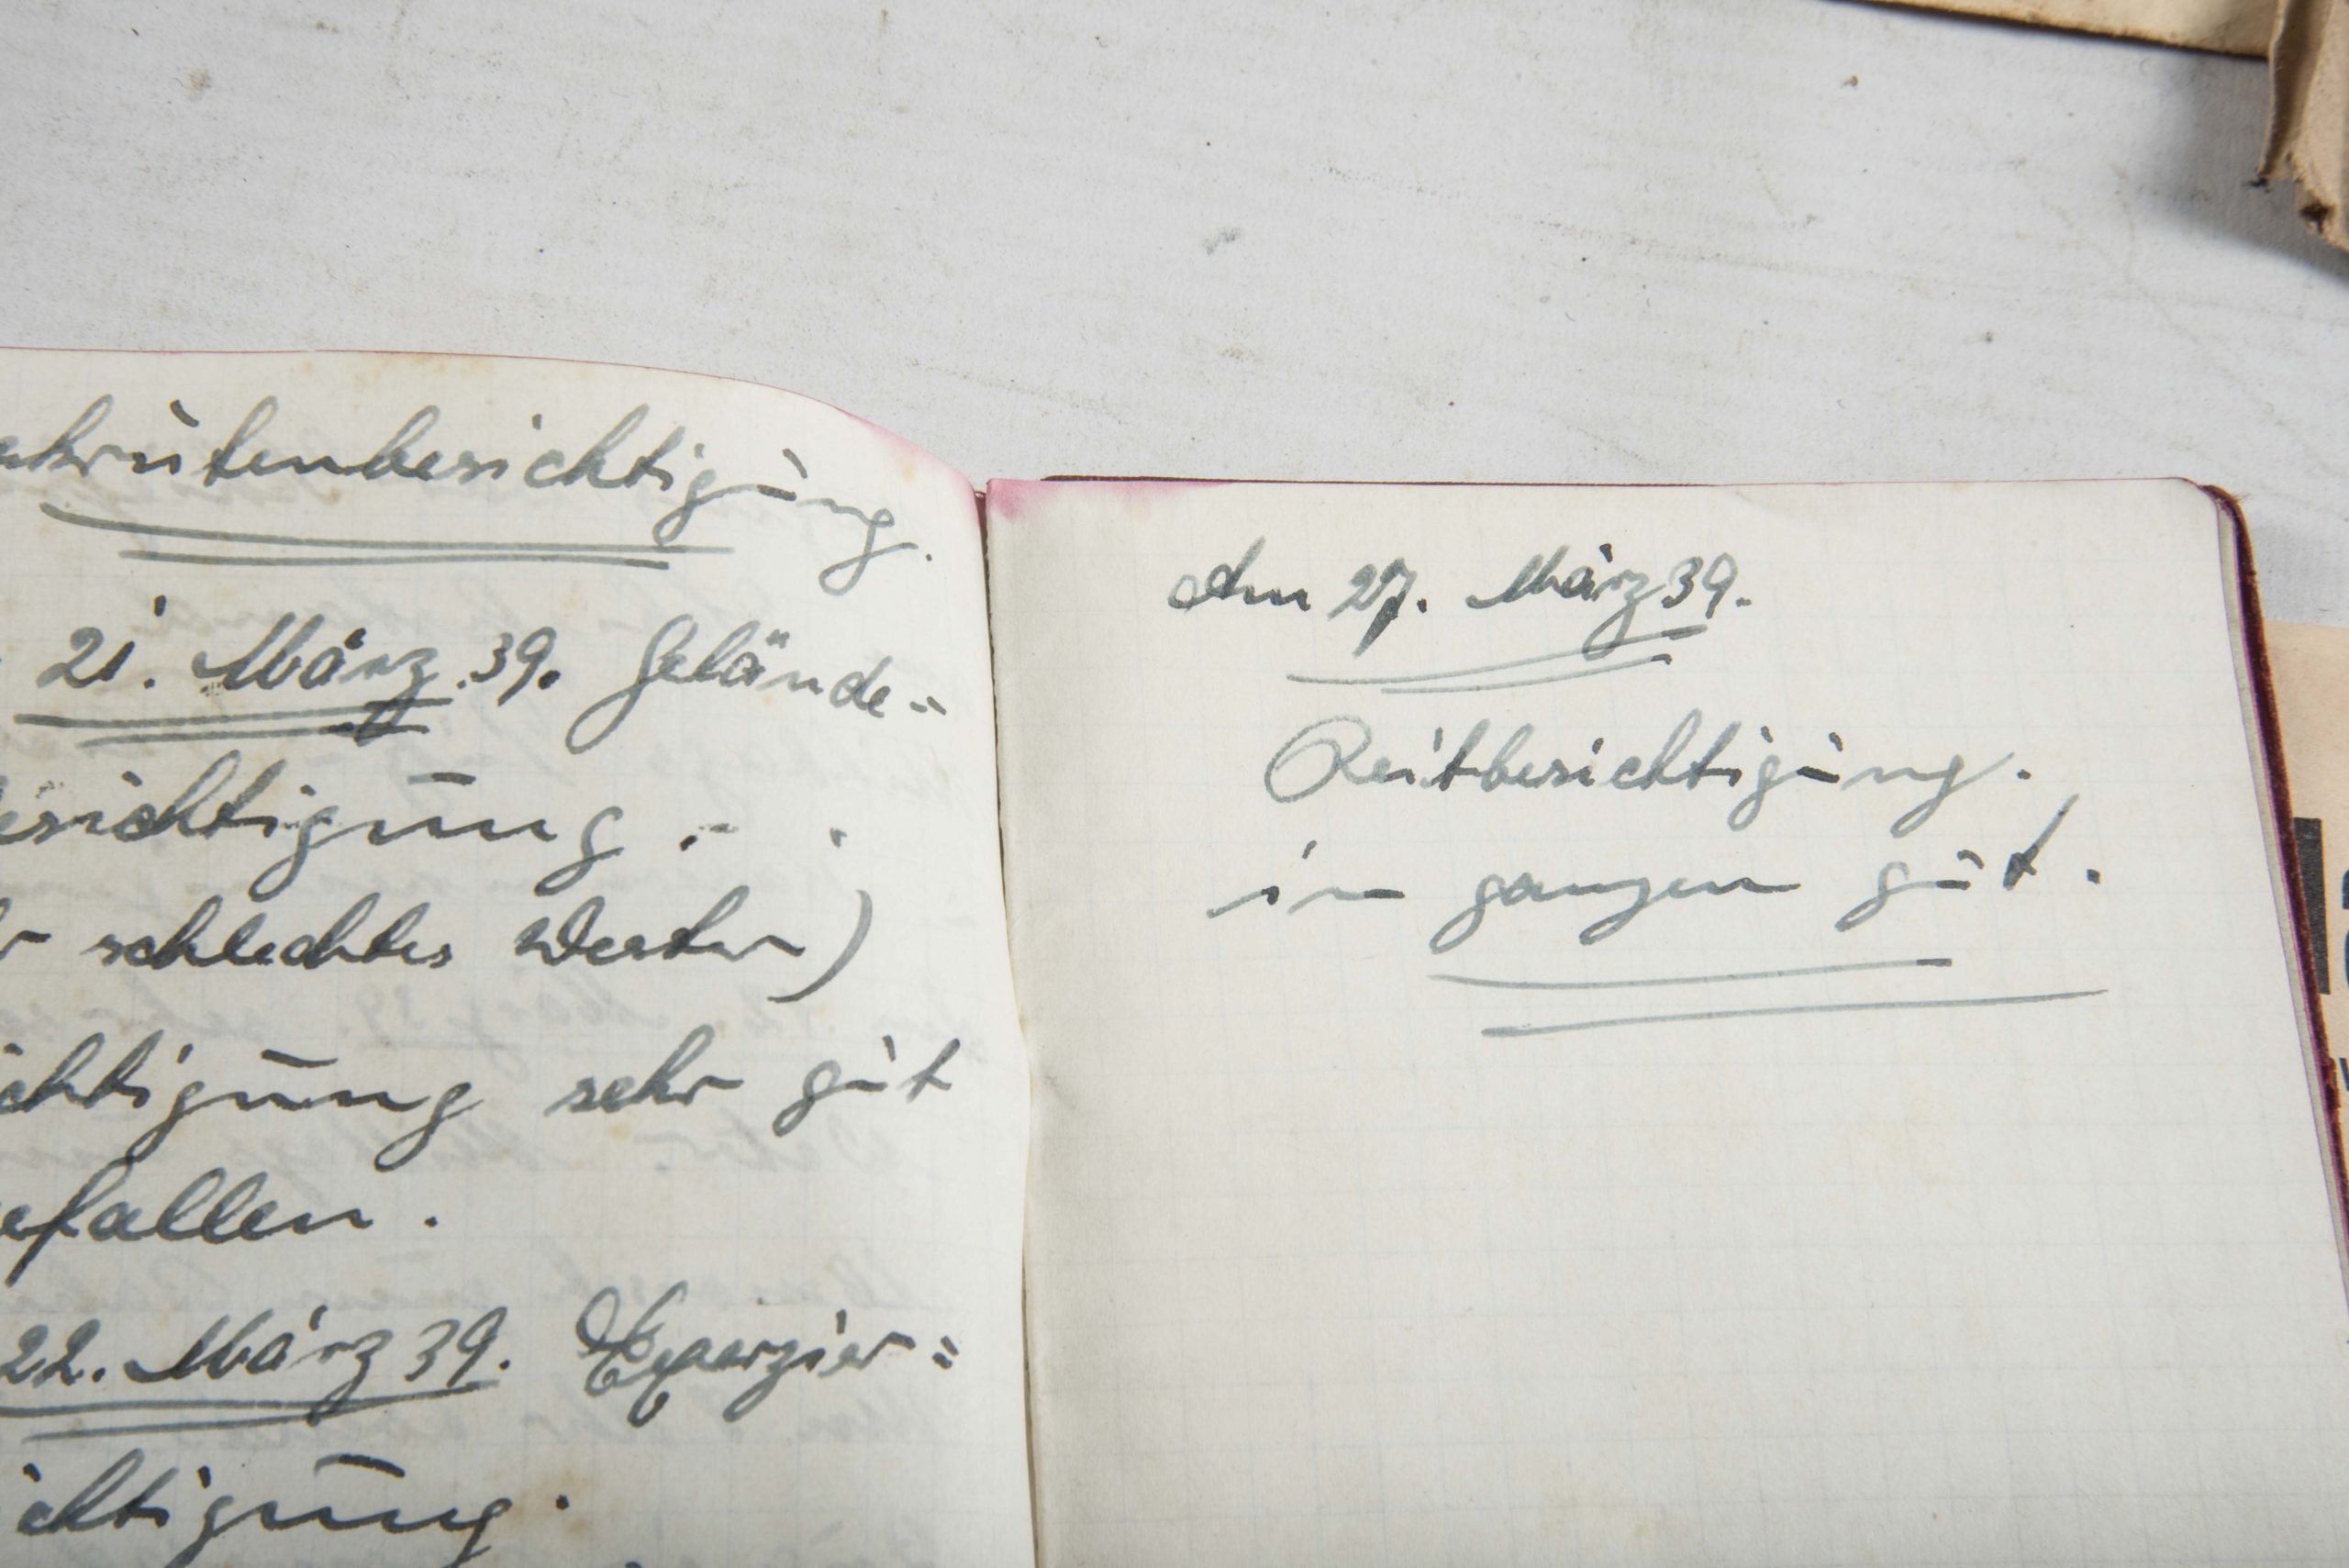 ekrutenbesichtigung.
21. März.39. Gelände=
esichtigung.
r schlechtes Wetter)
ichtigung sehr gut
efallen.
22. März 39. Exerzier=
ichtigung.
Am 27. März 39.
Reitbesichtigung.
im ganzen gut.